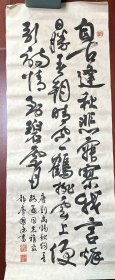 自古逢秋悲寂寥我言秋
日勝春朝晴空一鶴排雲上便
引詩情到碧霄
唐劉禹錫秋詞
同志雅
書